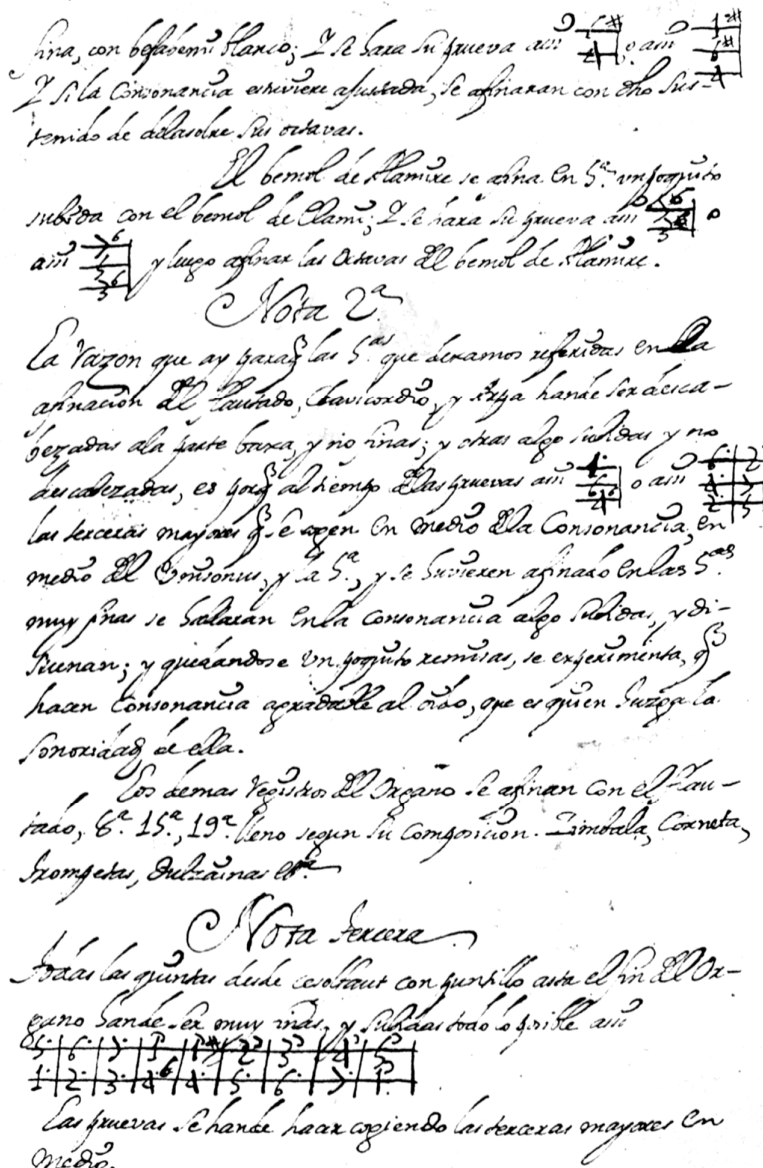 fina, con befabemi blanco; Y se hara su prueva asii o asii
Y si la Consonancia estuviere ajustada, se afinaran con dho sus-
tenido de delasolre sus octavas.
El bemol de Alamire se afina en 5ª un poquito
subida con el bemol de Elami; Y se hara su prueva asii o
asii y luego afinar las Octavas del bemol de Alamire.
Nota 2ª
La razon que ay paraq las 5.as que dexamos referidas en la
afinacion del flautado, Clavicordio, y Arpa hande ser desca-
bezadas ala parte baxa, y no finas; y otras algo subidas y no
descabezadas, es porq al tiempo delas pruevas asii o asii
las terceras mayores q se cogen en medio dela Consonancia, en
medio del Unisonus, y la 5ª, y se huvieren afinado en las 5.as
muy finas se hallaran en la consonancia algo subidas, y di-
suenan; y quedandose un poquito remisas, se experimenta, q
hacen Consonancia agradable al oido, que es quien Juzga la
sonoridad de ella.
Los demas registros del Organo se afinan con el flau-
tado, 8ª 15ª, 19ª lleno segun su composicion. Zimbala, Corneta,
trompetas, dulzainas
Nota tercera
todas las quintas desde cesolfaut con puntillo asta el fin del Or-
gano hande ser muy finas, y subidas todo lo posible asii
5· 6· 7· 1' 1'# 2' 3' 4' 5'
1· 2· 3· 4·6 4· 5· 6· 7· 1'
Las pruevas se hande hacer cogiendo las terceras mayores en
medio.